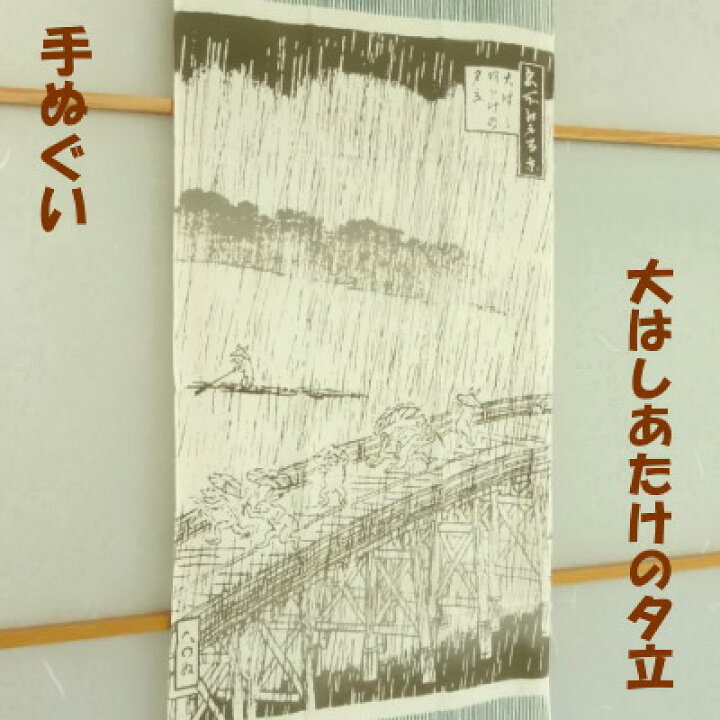 手ぬぐい
大はしあたけの夕立
大はし
あたけの
夕立